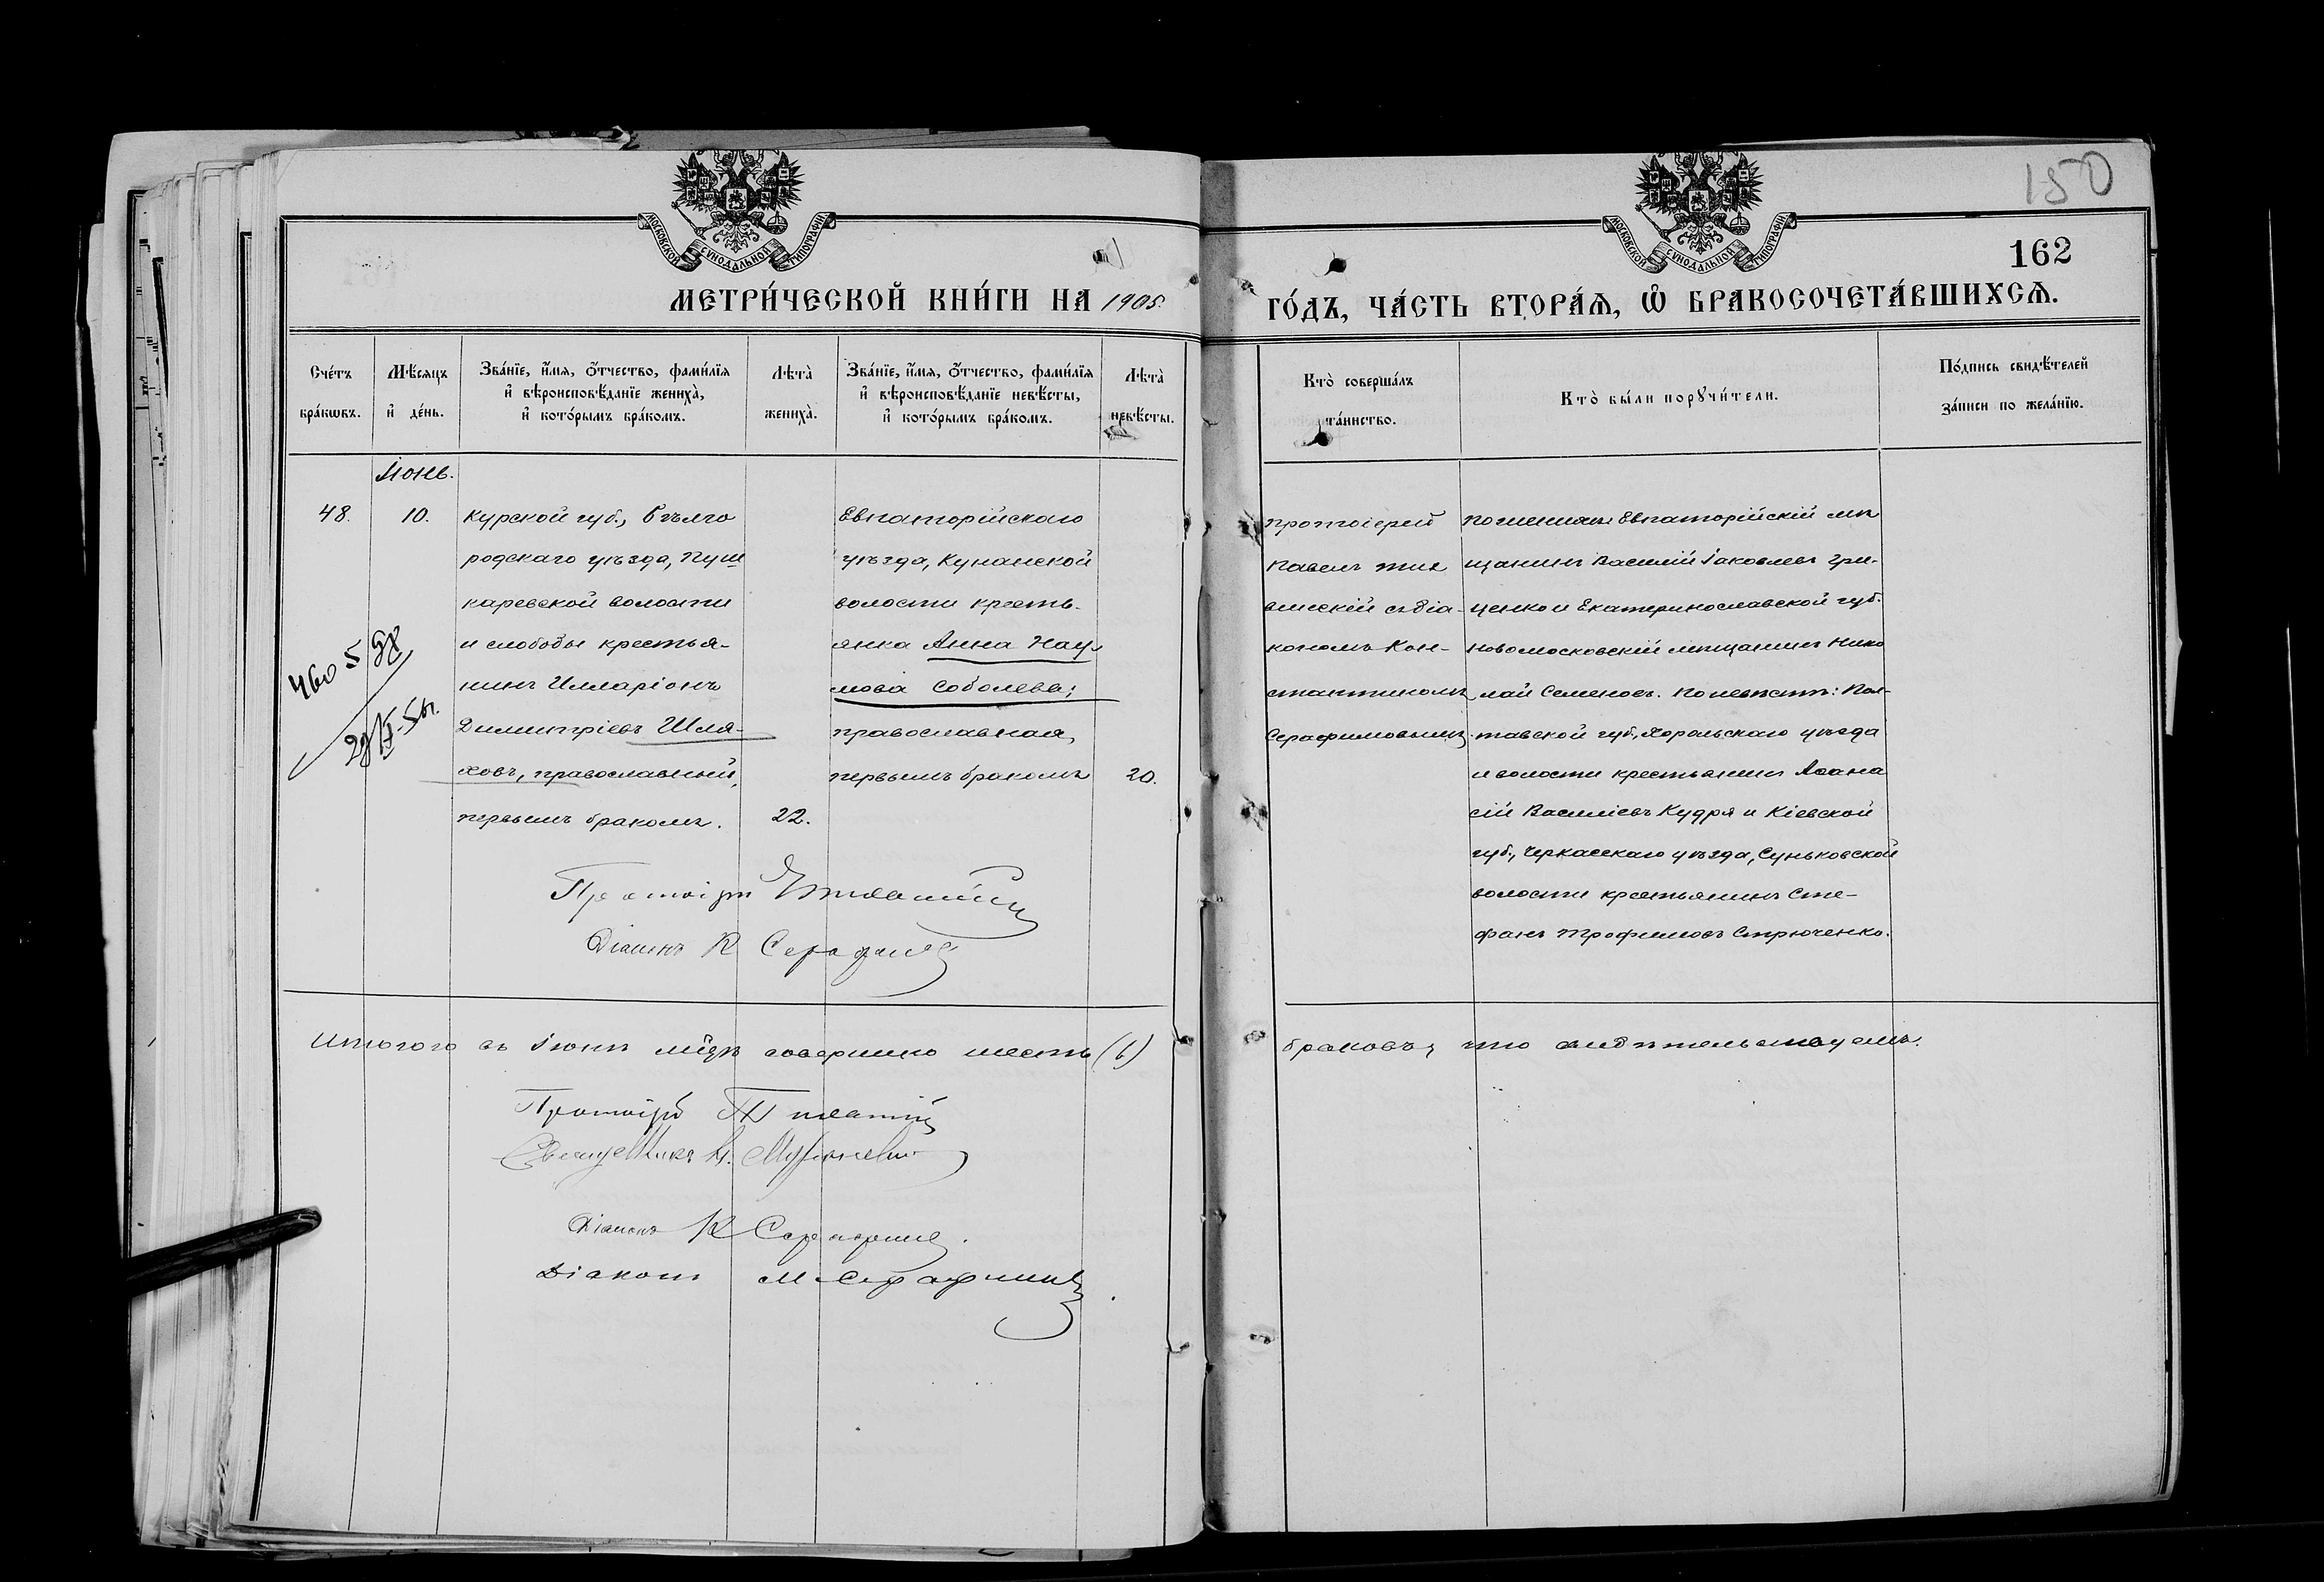 150
МОСКОВСКОЙ СѴНОДАЛЬНОЙ ТИПОГРАФІИ
МОСКОВСКОЙ СѴНОДАЛЬНОЙ ТИПОГРАФІИ
162
МЕТРИ́ЧЕСКОЙ КНИ́ГИ НА 1905.
ГО́ДЪ, ЧА́СТЬ ВТОРА́Ѧ, Ѡ҆ БРАКОСОЧЕТА́ВШИХСѦ.
Сче́тъ
бра́кѡвъ.
Мѣ́сѧцъ
и҆ де́нь.
Зва́нїе, и҆́мѧ, о҆́тчество, фами́лїѧ
и҆ вѣроисповѣ́данїе жениха̀,
и҆ кото́рымъ бра́комъ.
Лѣ́та̀
жениха̀.
Зва́нїе, и҆́мѧ, о҆́тчество, фами́лїѧ
и҆ вѣроисповѣ́данїе невѣ́сты,
и҆ кото́рымъ бра́комъ.
Лѣ́та̀
невѣ́сты.
Кто̀ соверша́лъ
та́инство.
Кто̀ бы́ли порꙋчи́тели.
По́дпись свидѣ́телей
за́писи по жела́нїю.
Іюнь.
48.
10.
Курской губ., Бѣлго
родскаго уѣзда, Пуш
каревской волости
и слободы крестья-
нинъ Илларіонъ
Димитріевъ Шля-
ховъ, православный,
первымъ бракомъ.
22.
Евпаторійскаго
уѣзда, Кунанской
волости кресть-
янка Анна Нау-
мова Соболева;
православная,
первымъ бракомъ
20.
Протоіерей
Павелъ
съ діа-
кономъ Кон-
стантиномъ
Серафимовымъ.
По женихѣ: Евпаторійскій мѣ
щанинъ Василій Іаковлевъ Гри-
ценко и Екатеринославской губ.
Новомосковскій мѣщанинъ Нико
лай Семеновъ. По невѣстѣ: Пол-
тавской губ., Хорольскаго уѣзда
и волости крестьянинъ Аѳана
сій Василіевъ Кудря и Кіевской
губ., Черкасскаго уѣзда, Суньковской
волости крестьянинъ Сте-
фанъ Трофимовъ Стрюченко.
Протоіерей
Діаконъ К Серафимовъ
Итого въ Іюнѣ мѣсяцѣ совершено шесть (6)
браковъ, что свидѣтельствуемъ.
Протоіерей
Священникъ
Діаконъ К Серафимовъ.
Діаконъ М. Серафимовъ